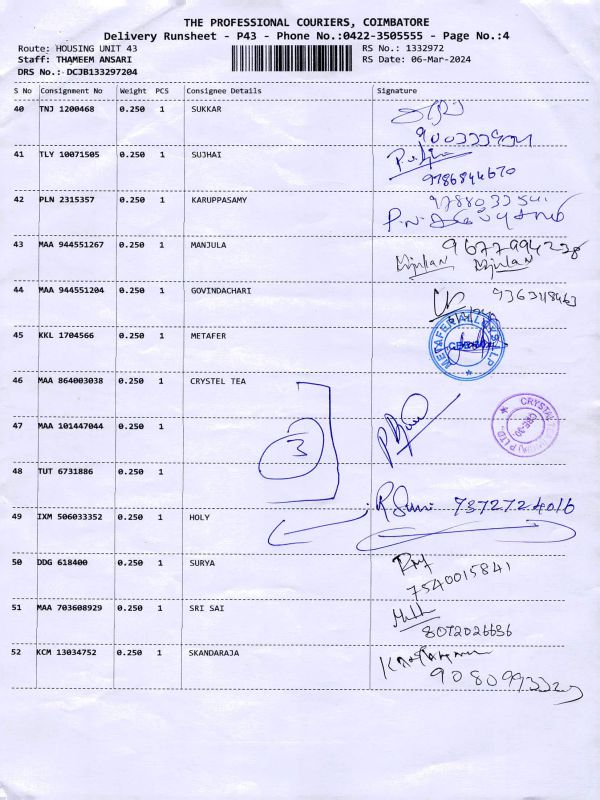 THE PROFESSIONAL COURIERS, COIMBATORE
Delivery Runsheet - P43 - Phone No.:0422-3505555 - Page No.:4
Route: HOUSING UNIT 43 RS No.: 1332972
Staff: THAMEEM ANSARI RS Date: 06-Mar-2024
DRS No.: DCJB133297204
S No Consignment No Weight PCS Consignee Details Signature
40 TNJ 1200468 0.250 1 SUKKAR
41 TLY 10071505 0.250 1 SUJHAI
9786844670
42 PLN 2315357 0.250 1 KARUPPASAMY
43 MAA 944551267 0.250 1 MANJULA
9677994228
44 MAA 944551204 0.250 1 GOVINDACHARI
9363118463
45 KKL 1704566 0.250 1 METAFER
METAFER ALLOYS LLP
46 MAA 864003038 0.250 1 CRYSTEL TEA
47 MAA 101447044 0.250 1
3
48 TUT 6731886 0.250 1
7372724016
49 IXM 506033352 0.250 1 HOLY
50 DDG 618400 0.250 1 SURYA
7540015841
51 MAA 703608929 0.250 1 SRI SAI
8072026636
52 KCM 13034752 0.250 1 SKANDARAJA